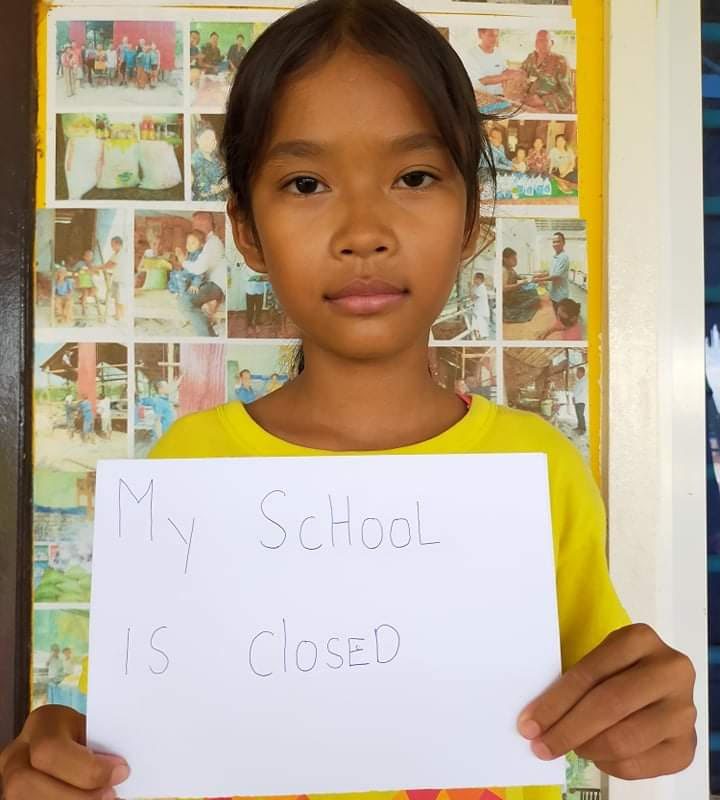 My ScHooL
iS closED